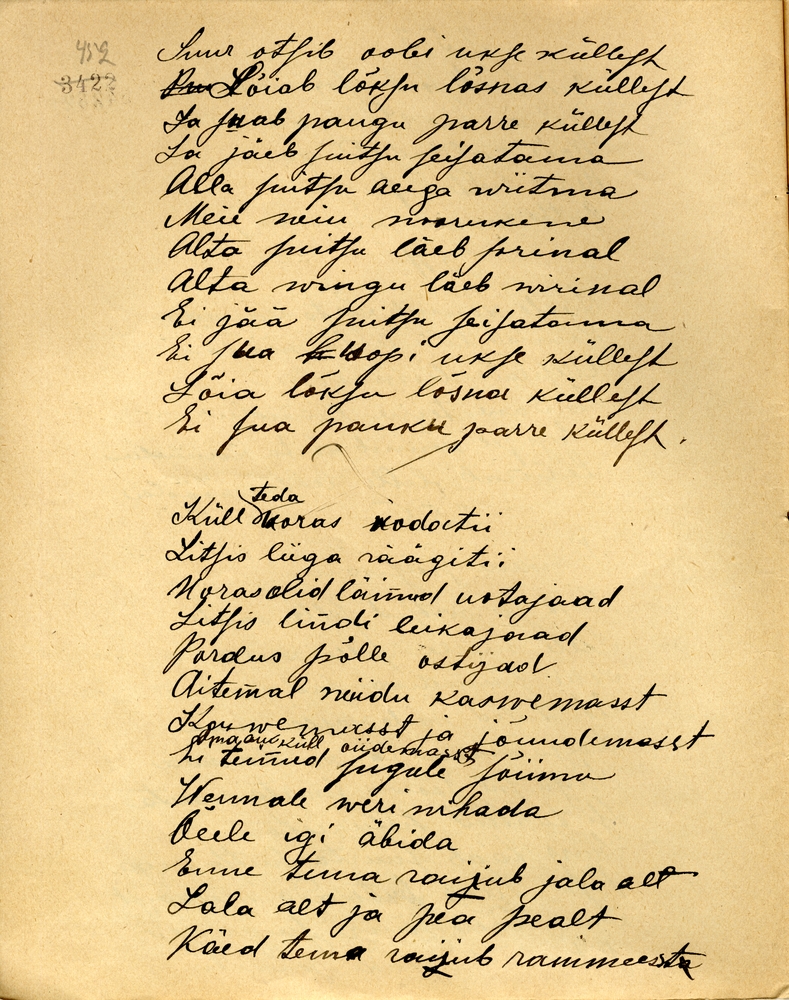 452
3422
Suur otsib oobi ukse küllest
Lõiab lõksu lõsnas küllest
Ja suab paugu parre küllest
Ja jäeb suitsu seisatama
Alla suitsu auga wiitma
Meie neiu noorukene
Alta suitsu läeb sorinal
Alta wingu läeb wirinal
Ei jää suitsu seisatama
Ei sua hoopi ukse küllest
Lõia lõksu lõsna küllest
Ei sua pauku parre küllest.
Küll teda noras oodetii
Litsis liiga räägitii
Noras olid läinud ootajaad
Litsis lindi leikajaad
Pordus põlle ostijad
Aitemal neidu kaswemasst
Kaswemasst ja jõuudemasst
Oma äiu küll õiidemasst
Ei teinud sugule sõiimu
Wennale weri wihada
Õeele igi äbida
Enne tema raijub jala alt
Jala alt ja pea pealt
Käed tema raijub rammeesta